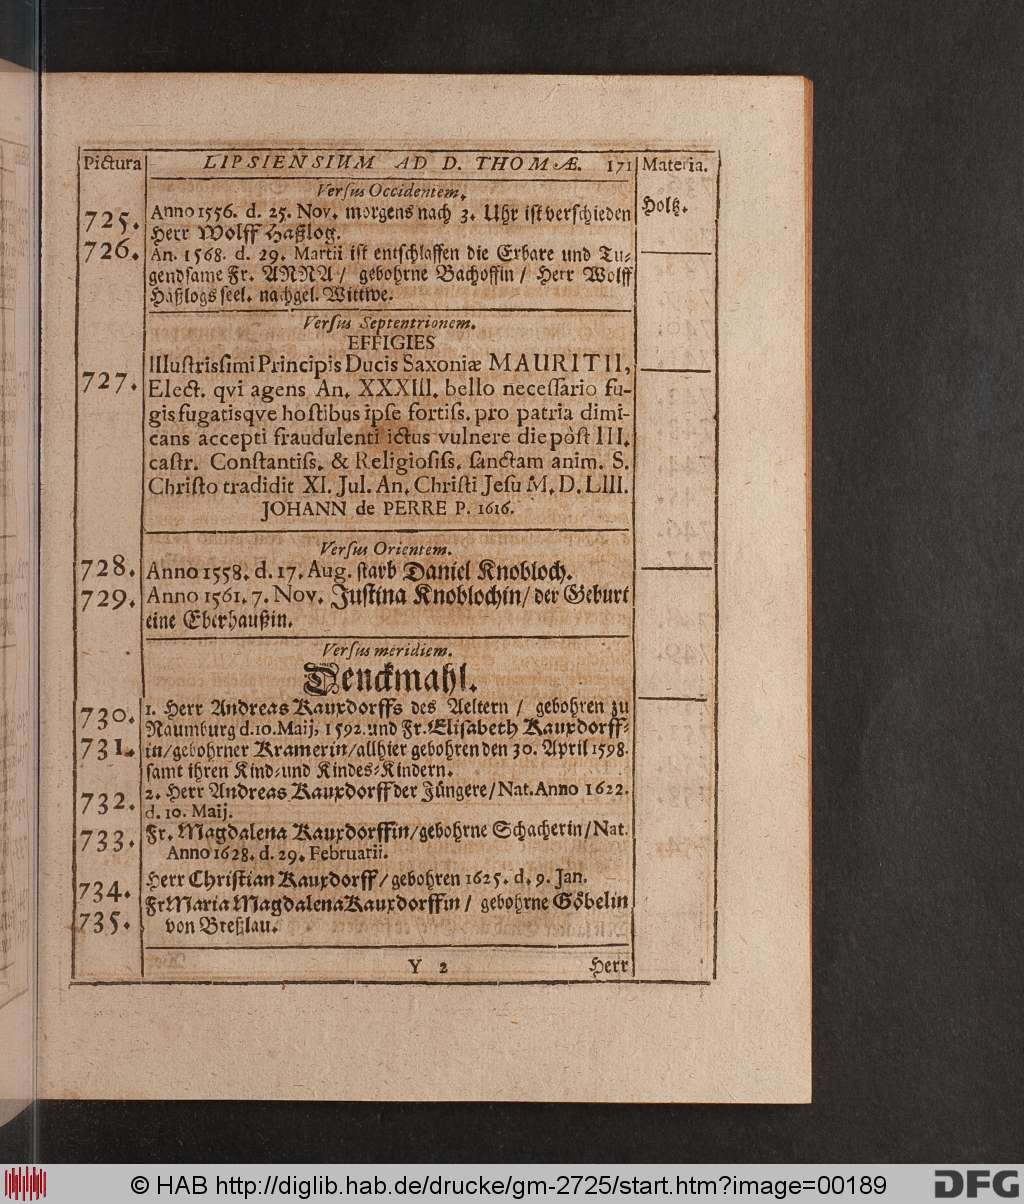 Pictura LIPSIENSIUM AD D. THOMÆ. 171 Materia.
Versus Occidentem.
725. Anno 1556. d. 25. Nov. morgens nach 3. Uhr ist verschieden Holtz.
Herr Wolff Haßlog.
726. An. 1568. d. 29. Martii ist entschlaffen die Erbare und Tu-
gendsame Fr. ANNA / gebohrne Bachoffin / Herr Wolff
Haßlogs seel. nachgel. Wittwe.
Versus Septentrionem.
EFFIGIES
Illustrissimi Principis Ducis Saxoniæ MAURITII,
727. Elect. qvi agens An. XXXIII. bello necessario fu-
gis fugatisqve hostibus ipse fortiss. pro patria dimi-
cans accepti fraudulenti ictus vulnere die pòst III.
castr. Constantiss. & Religiosiss. sanctam anim. S.
Christo tradidit XI. Jul. An. Christi Jesu M. D. LIII.
JOHANN de PERRE P. 1616.
Versus Orientem.
728. Anno 1558. d. 17. Aug. starb Daniel Knobloch.
729. Anno 1561. 7. Nov. Justina Knoblochin / der Geburt
eine Eberhaußin.
Versus meridiem.
Denckmahl.
730. 1. Herr Andreas Kauxdorffs des Aeltern / gebohren zu
Naumburg d. 10. Maij, 1592. und Fr. Elisabeth Kauxdorff-
731. in / gebohrner Kramerin / allhier gebohren den 30. April 1598.
samt ihren Kind- und Kindes-Kindern.
732. 2. Herr Andreas Kauxdorff der Jüngere / Nat. Anno 1622.
d. 10. Maij.
733. Fr. Magdalena Kauxdorffin / gebohrne Schacherin / Nat.
Anno 1628. d. 29. Februarii.
734. Herr Christian Kauxdorff / gebohren 1625. d. 9. Jan.
735. Fr Maria Magdalena Kauxdorffin / gebohrne Göbelin
von Breßlau.
Y 2 Herr
© HAB http://diglib.hab.de/drucke/gm-2725/start.htm?image=00189 DFG